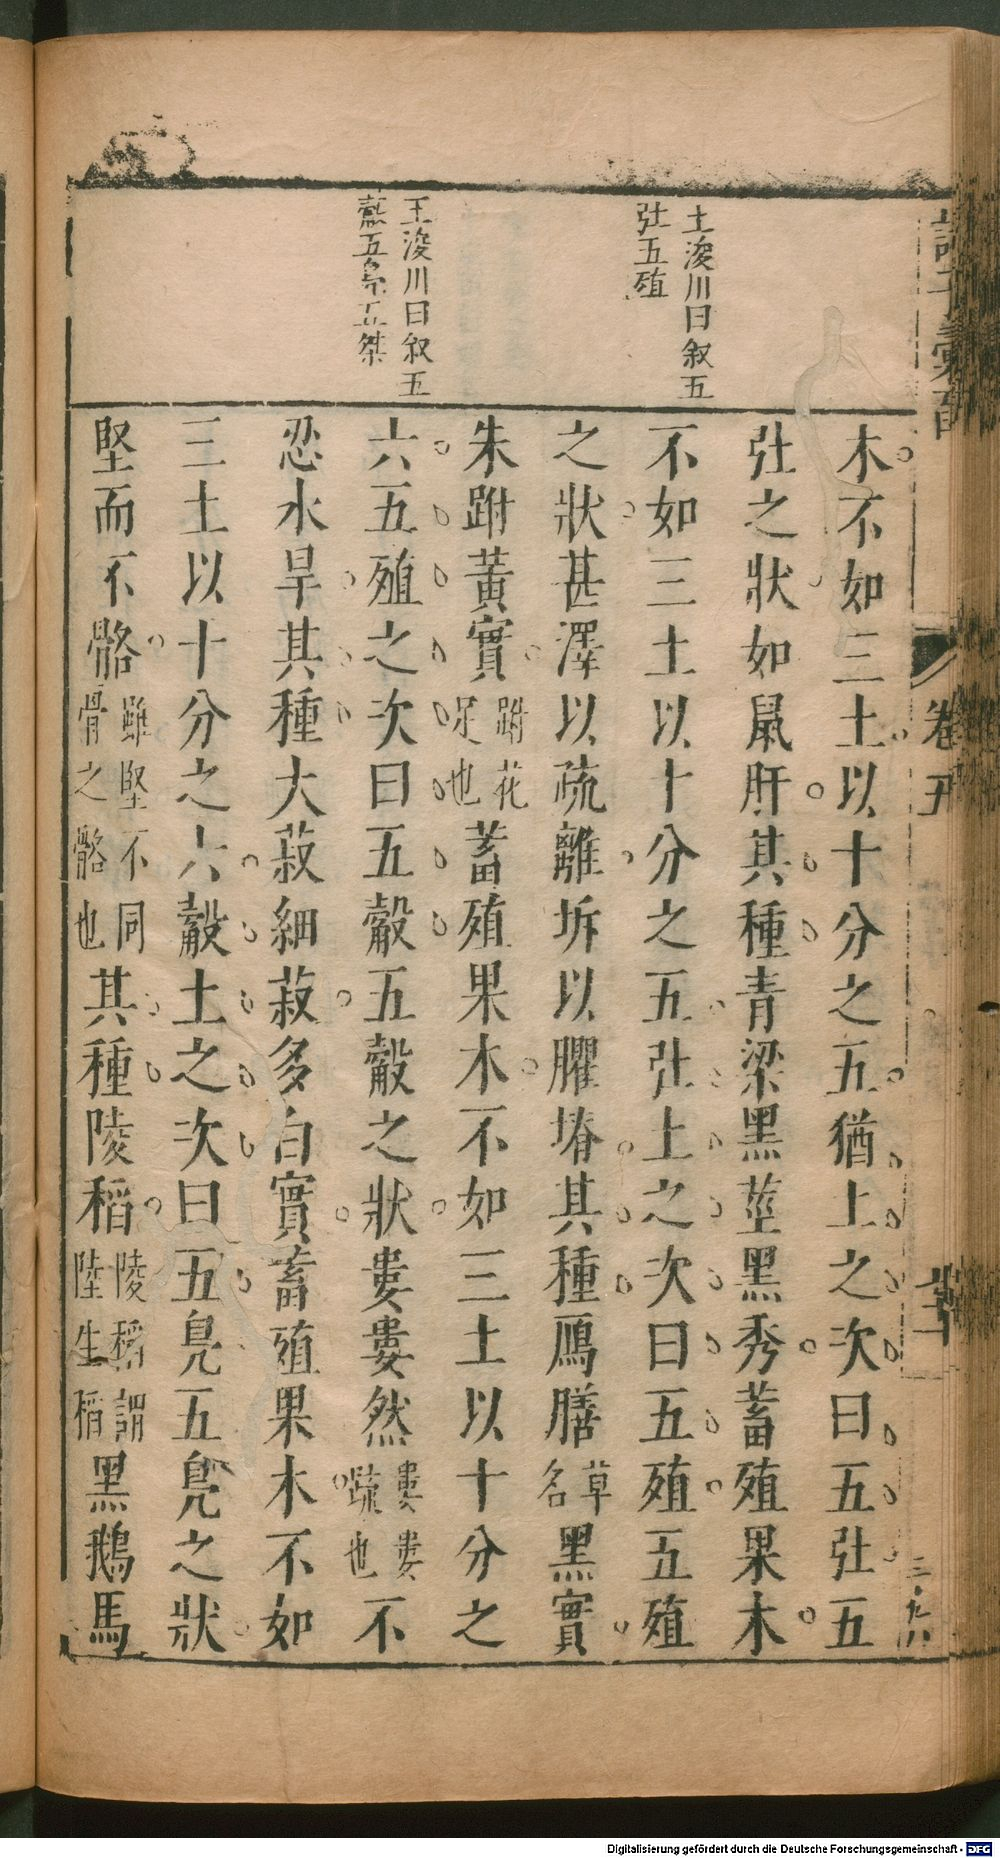 土浚川曰叙五
𡉏五殖
王浚川曰叙五
鷇五鳧五桀
木不如三土以十分之五猶土之次曰五𡉏五
𡉏之狀如鼠肝其種青梁黑莖黑秀蓄殖果木
不如三土以十分之五𡉏土之次曰五殖五殖
之狀甚澤以疏離坼以臞塉其種鴈膳草名黑實
朱跗黃實跗花足也蓄殖果木不如三土以十分之
六五殖之次曰五鷇五鷇之狀婁婁然婁婁疏也不
忍水旱其種大菽細菽多白實蓄殖果木不如
三土以十分之六鷇土之次曰五鳧五鳧之狀
堅而不骼雖堅不同骨之骼也其種陵稻陵稻謂陸生稻黑鵝馬
卷五
Digitalisierung gefördert durch die Deutsche Forschungsgemeinschaft - DFG